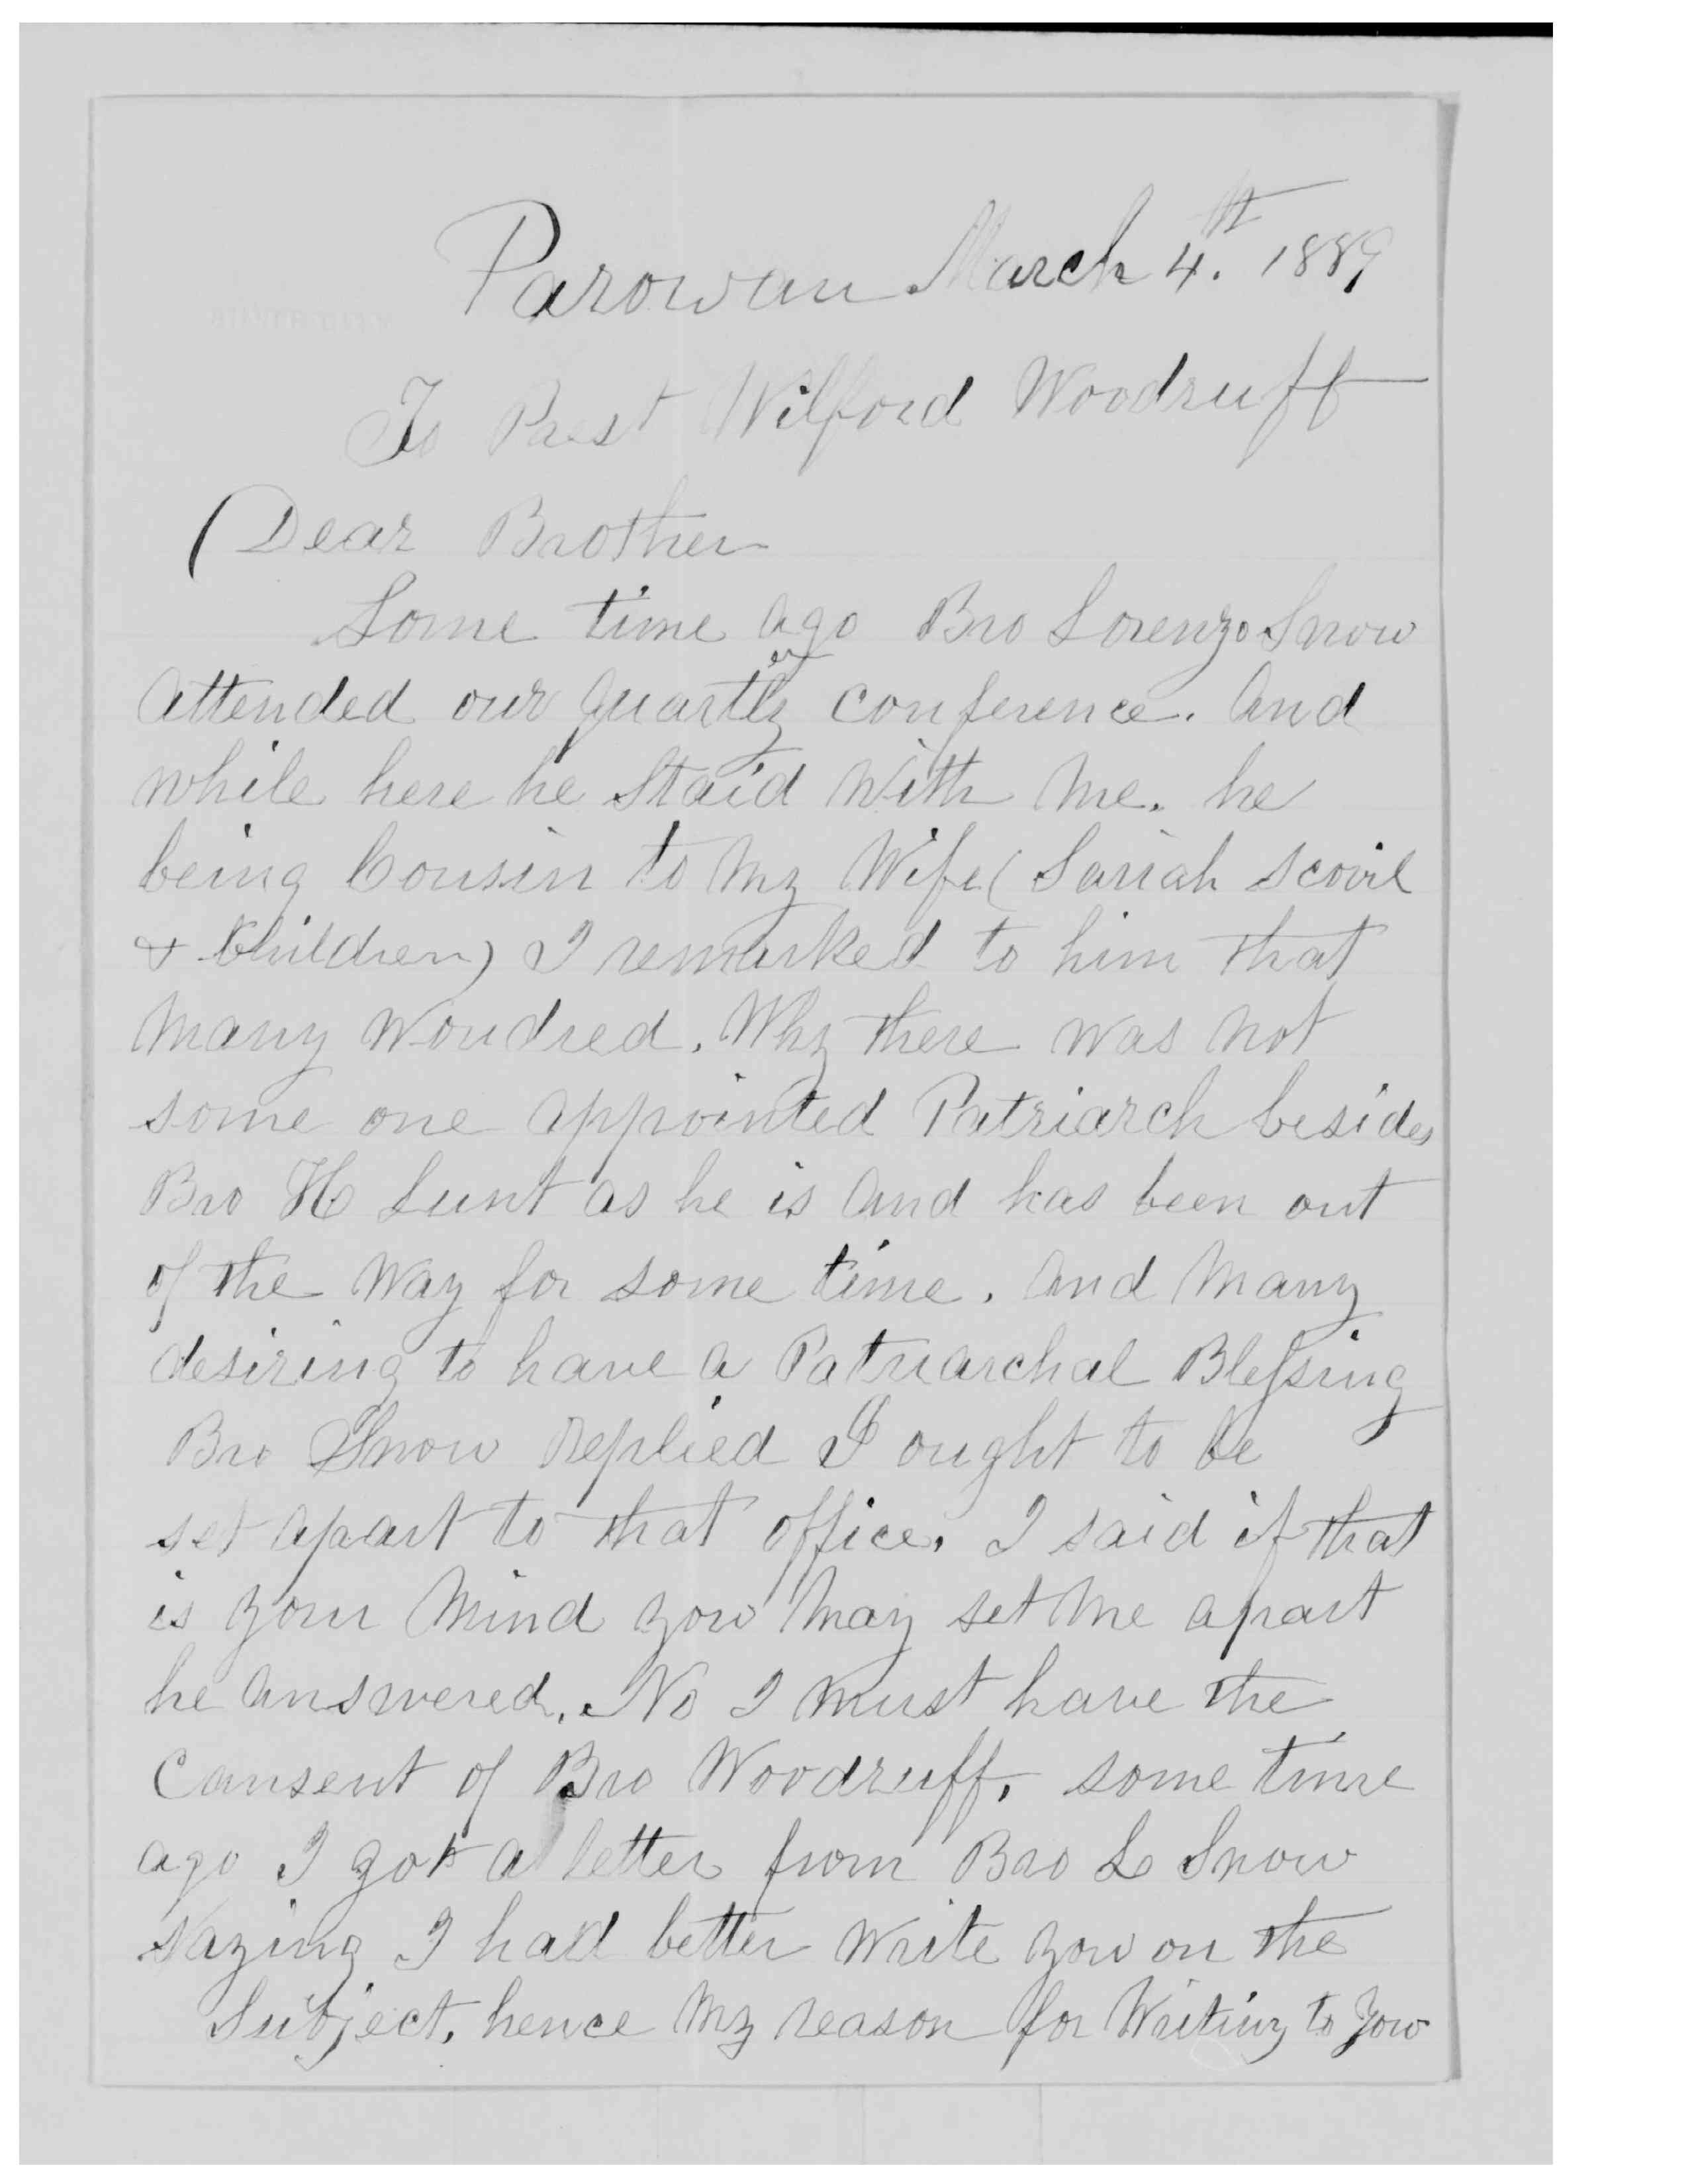 Parowan March 4th. 1889
To Prest Wilford Woodruff
Dear Brother
Some time ago Bro Lorenzo Snow
attended our quarterly conference. And
while here he staid with me. he
being Cousin to my Wife (Sariah Scovil
& Children) I remarked to him that
many wondred. Why there was not
some one appointed Patriarch besides
Bro H Lunt as he is and has been out
of the way for some time. and many
desiring to have a Patriarchal Blessing
Bro Snow replied I ought to be
set apart to that office. I said if that
is your mind you may set me apart
he answered. No I must have the
Consent of Bro Woodruff. some time
ago I got a letter from Bro L Snow
saying I had better write you on the
Subject. hence my reason for Writing to you